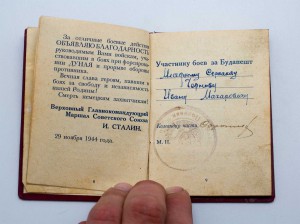 За отличные боевые действия
ОБЪЯВЛЯЮ БЛАГОДАРНОСТЬ
руководимым Вами войскам, участвовавшим
в боях при форсировании
ДУНАЯ и прорыве обороны
противника.
Вечная слава героям, павшим в
боях за свободу и независимость
нашей Родины!
Смерть немецким захватчикам!
Верховный Главнокомандующий
Маршал Советского Союза
И. СТАЛИН.
29 ноября 1944 года.
Участнику боев за Будапешт
Ивану Макаровичу
Командир части
М. П.